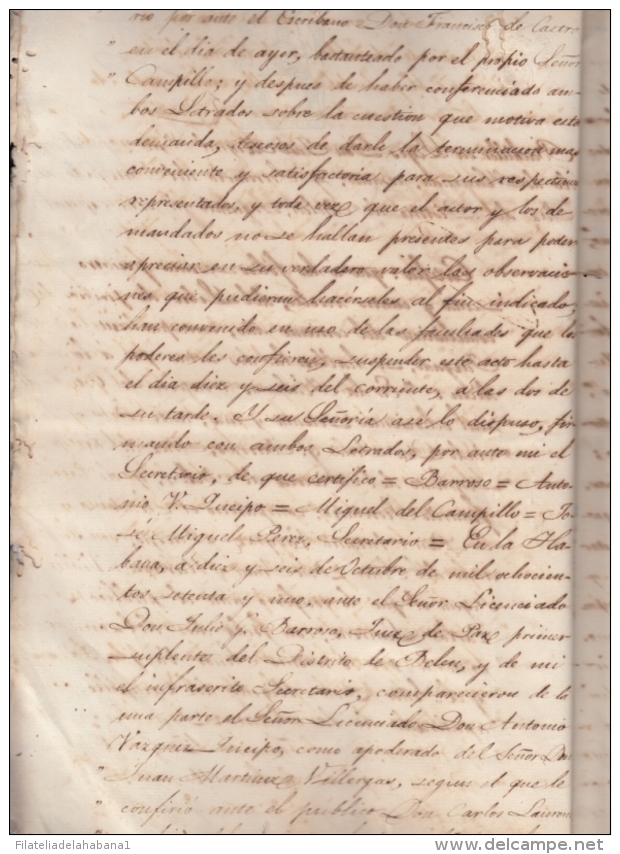 rio por ante el Escribano Don Francisco de Castro
" en el dia de ayer, bastanteado por el propio Señor
" Campillo; y despues de haber conferenciado am-
bos Letrados sobre la cuestion que motiva esta
demanda, deseosos de darle la terminacion mas
conveniente y satisfactoria para sus respectivos
representados, y toda vez que el actor y los de-
mandados no se hallan presentes para poder
apreciar en su verdadero valor las observacio-
nes que pudieran hacérseles al fin indicado,
han convenido en uso de las facultades que los
poderes les confieren, suspender este acto hasta
el dia diez y seis del corriente, á las dos de
su tarde. Y su Señoría asi lo dispuso, fir-
mando con ambos Letrados, por ante mi el
Secretario, de que certifico = Barroso = Anto-
nio V. Queipo = Miguel del Campillo = Jo-
sé Miguel Perez, Secretario = En la Ha-
bana, a diez y seis de Octubre de mil ochocien-
tos setenta y uno, ante el Señor Licenciado
Don Julio y. Barroso, Juez de Paz primer
suplente del Distrito de Belen, y de mi
el infrascrito Secretario, comparecieron de la
una parte el Señor Licenciado Don Antonio
Vazquez Queipo, como apoderado del Señor Don
" Juan Martinez Villergas, segun el que le
" confirió ante el publico Don Carlos
Filateliadelahabana1
delcampe.net